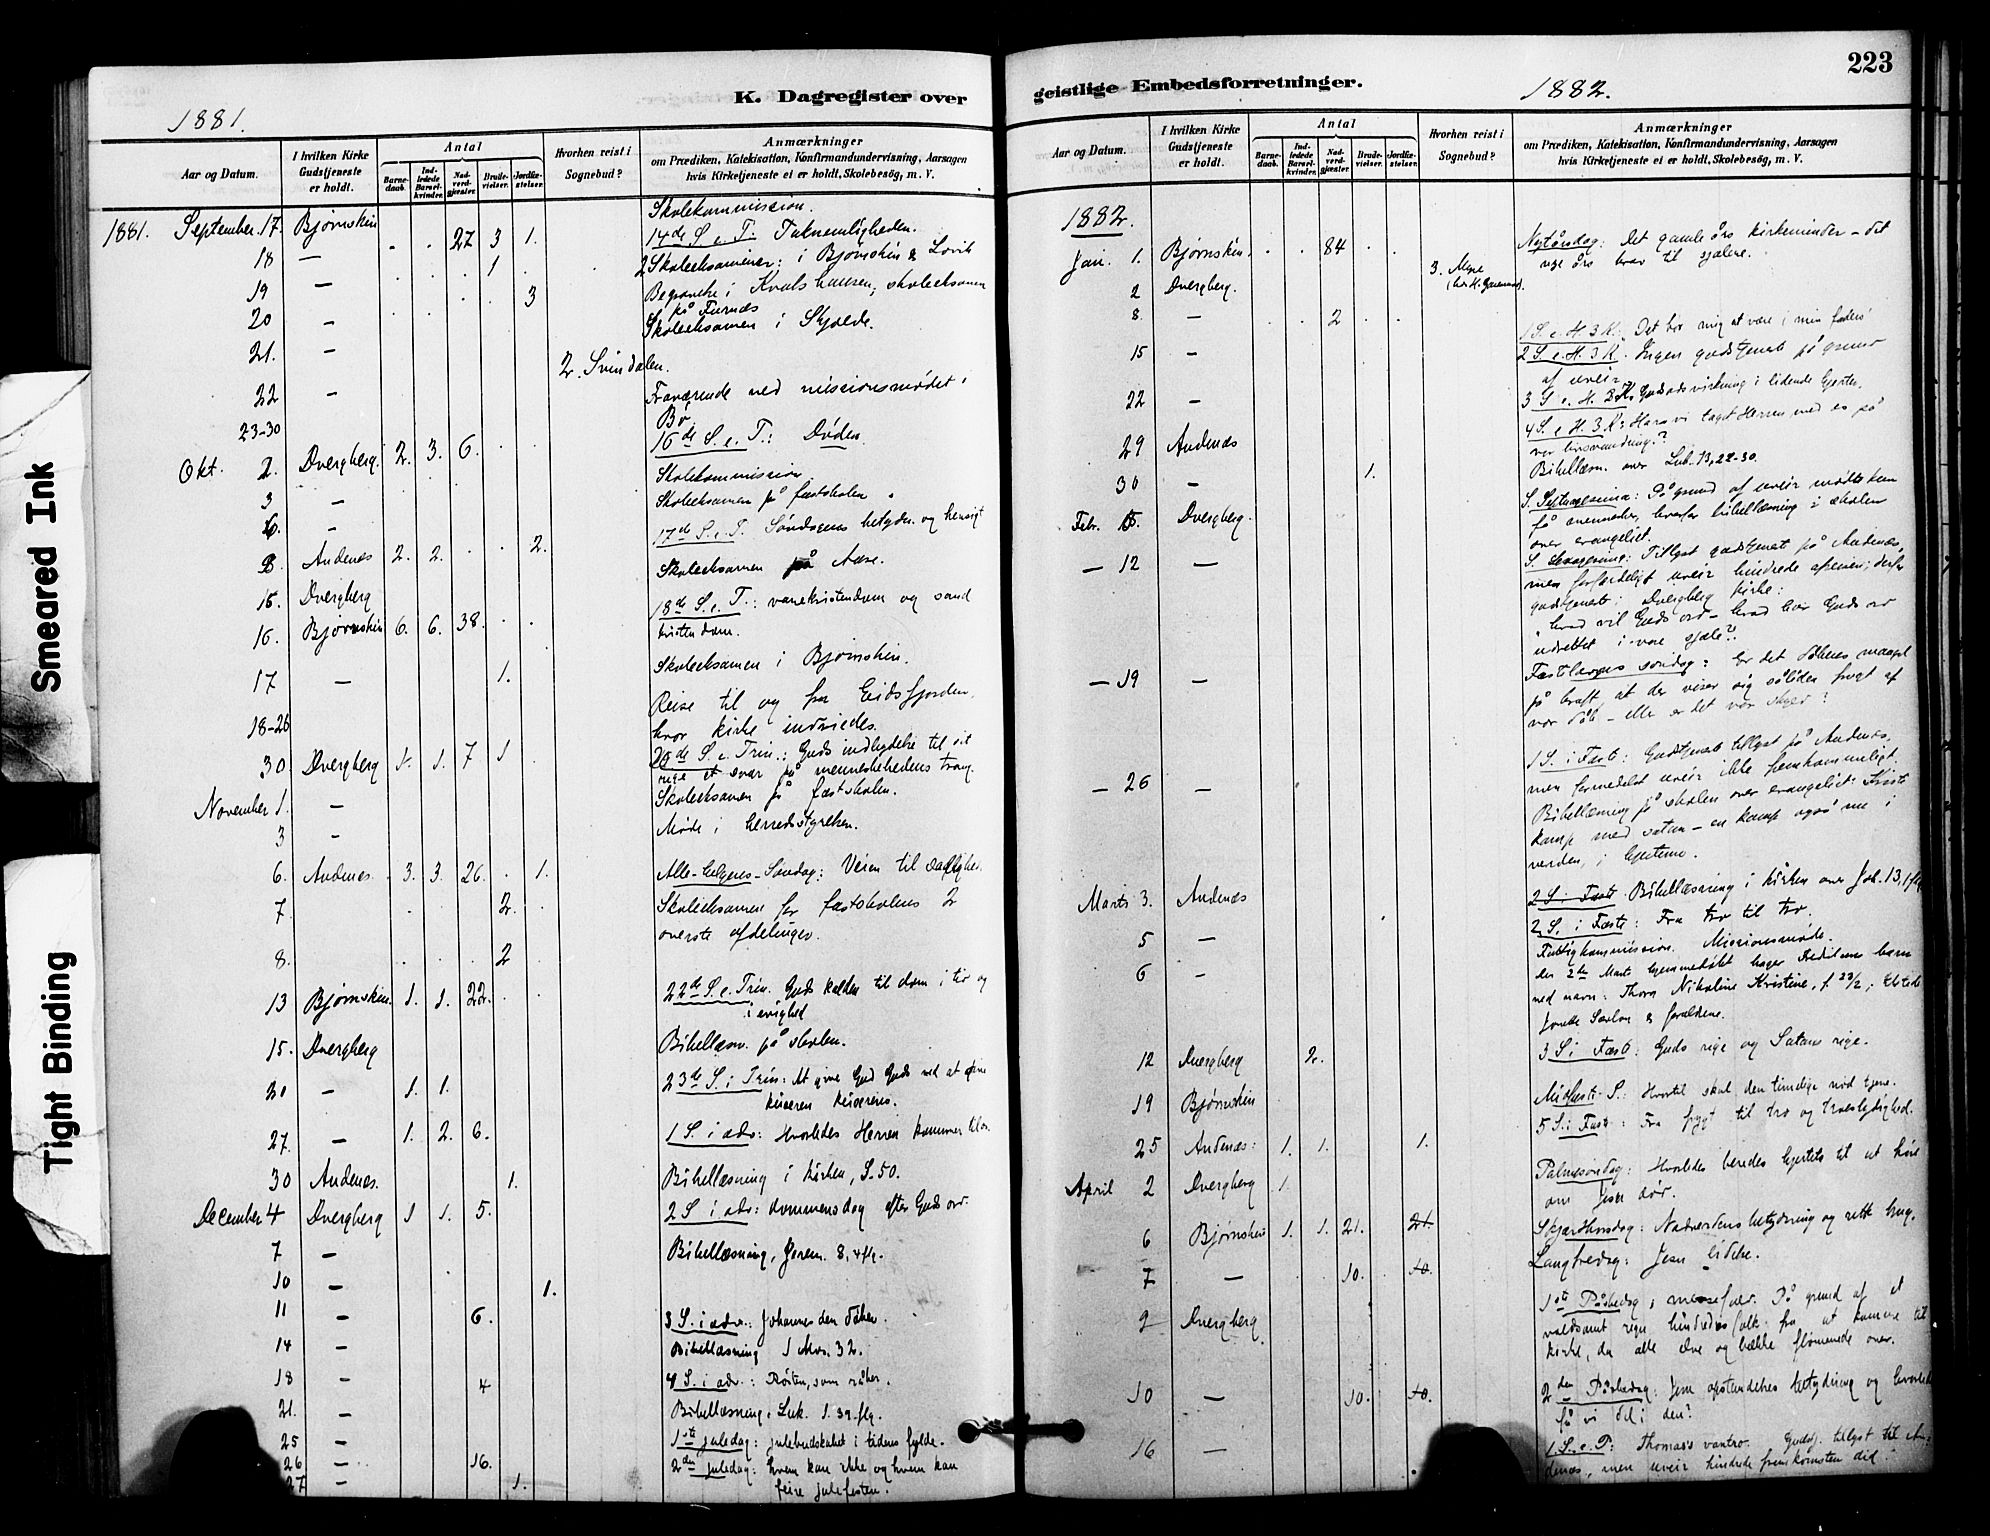 Smeared Ink
Tight Binding
K. Dagregister over
1881.
Aar og Datum.
I hvilken Kirke Gudstjeneste er holdt.
Antal
Barnedaab.
Indledede Barselkvinder.
Nadverdgjæster.
Brudevielser.
Jordfæstelser.
Hvorhen reist i Sognebud?
Anmærkninger
om Prædiken, Katekisation, Konfirmandundervisning, Aarsagen
hvis Kirketjeneste ei er holdt, Skolebesög, m. V.
Skolekommission.
1881. September 17. Bjørnskin . . 27 3 1. 14de S. e. T: Taknemligheden.
18 — . . . 1 2 Skoleeksamener: i Bjørnskin &
19 — . . . . 3 Begravelse i skoleeksamen
på Furnes
20 — Skoleeksamen i
21. — 2. Svindalen.
22 — Fraværende ved missionsmødet i
23-30 Bø
Okt. 2. Dverberg. 2. 3. 6. . . 16de S. e. T.: Døden.
3 — Skolekommission
6. — Skoleeksamen på fastskolen.
17de S. e. T. Søndagens betydn. og hensigt
8. Andenæs 2. 2. . . 2.
Skoleeksamen på Aase.
15. Dverberg
18de S. e. T.: vanekristendom og sand
16. Bjørnskin 6. 6. 38. . . kristendom.
Skoleeksamen i Bjørnskin.
17 — 1.
Reise til og fra Eidsfjorden,
18-26 hvor kirke indviedes.
30 Dverberg 1. 1. 7 1 20de S. e. Trin.: Guds indbydelse til sit
rige et svar på menneskehedens trang.
November 1. — Skoleeksamen på fastskolen.
3 — Møde i herredsstyrelsen.
6. Andenæs. 3. 3. 26. . 1. Alle-helgenes-Søndag: Veien til salighed.
7. . . . 2. . Skoleeksamen for fastskolens 2
øverste afdelinger.
8. . . . . 2
13 Bjørnskin. 1. 1. 22. . . 22de S. e. Trin. Guds kalden til dom i tid og
i evighed
15. Dverberg Bibellæsn. på skolen.
20 — 1. 1. 23de S. i Trin: At give Gud Guds ved at give
keiseren keiserens.
27. — 1. 2. 6. 1 S. i adv: Hvorledes Herren kommer til os.
30 Andenæs. 1. Bibellæsning i kirken, S. 50.
December 4 Dverberg 1 1. 5. 2 S i adv: dommens dag efter Guds ord.
7 — Bibellæsning, Jerem. 8, 4 flg.
10 — 1.
11 — 6. 3 S. i adv.: Johannes den døber.
14 — Bibellæsning 1 Mos. 32.
18 — 4 4 S. i adv.: Røsten, som råber.
21. — Bibellæsning. Luk. 1. 39. flg.
25 — 1ste juledag: julebudskabet i tidens fylde.
26 — 16. 2den juledag: hvem kan ikke og hvem kan
27 — 1. feire julefesten.
geistlige Embedsforretninger.
1882.
223
Aar og Datum.
I hvilken Kirke Gudstjeneste er holdt.
Antal
Barnedaab.
Indledede Barselkvinder.
Nadverdgjæster.
Brudevielser.
Jordfæstelser.
Hvorhen reist i Sognebud?
Anmærkninger
om Prædiken, Katekisation, Konfirmandundervisning, Aarsagen
hvis Kirketjeneste ei er holdt, Skolebesög, m. V.
1882.
Jan. 1. Bjørnskin. . . 84 . . Nytårsdag: Det gamle års kirkeminder – det
nye års krav til sjælene.
2 Dverberg. 3. Myre
8. — . . 2 . . 1 S. e. H. 3 K.: Det bør mig at være i min faders
15 — 2 S. e. H. 3 K. Ingen gudstjenest på grund
af uveir.
22 — 3 S. e. H. 3 K. Guds ords virkning i lidende hjerter.
4 S. e. H. 3 K: Have vi taget Herren med os på
29 Andenæs vor livsvandring.?
Bibellæsn. over Luk. 13, 22-30.
30 — 1.
S. Septuagesima: På grund af uveir mødte kun
Febr. 5. Dverberg. få mennesker, hvorfor bibellæsning i skolen
over evangeliet.
— 12 — S. Sexagesima: Tillyst gudstjenest på Andenæs,
men forfærdeligt uveir hindrede afreisen; derfor
gudstjenest i Dverberg kirke:
hvad vil Guds ord – hvad har Guds ord
udrettet i vore sjæle?
— 19 — Fastelavns søndag: Er det dåbens mangel
på kraft at der viser sig så liden frugt af
vor dåb – eller er det vor skyld?
1 S. i Fast: Gudstjenest tillyst på Andenæs,
— 26 — men formedelst uveir ikke fremkommeligt.
Bibellæsning på skolen over evangeliet: Kristi
kamp med satan – en kamp også nu i
verden, i hjerterne.
Marts 3. Andenæs 2 S. i Fast Bibellæsning i kirken over Joh. 13, 1 flg.
5 — 2 S. i Faste: Fra tro til tro.
Fattigkommission. Missionsmøde.
6 — den 2de Marts hjemmedøbt barn
ved navn: Thora Nikoline Kristine, f. 23/2;
& forældrene.
12 Dverberg 2. 3 S i Fast: Guds rige og Satans rige.
19 Bjørnskin Midfaste S.: Hvortil skal den timelige nød tjene.
25 Andenæs: 1. 1. 1. 5 S. i Fast: Fra frygt til tro og troeslydighed.
April 2 Dverberg 1. Palmesøndag: Hvorledes beredes hjertets til at høre
om Jesu død.
6 Bjørnskin 1. 1. 21. 21. Skjærthorsdag: Nadverdens betydning og rette brug.
7 — 10. 10. Langfredag: Jesu lidelse.
9 Dverberg 1ste Påskedag; messefald. På grund af et
voldsomt regn hindredes folk fra at komme til
kirke, da alle elve og bække flømmede over.
10 — 10. 10. 2den Påskedag: Jesu opstandelses betydning og hvorledes
få vi del i den?
16 — 1. S. e. P: Thomas's vantro. Gudstj. tillyst til An-
denæs, men uveir hindrede fremkomsten did.